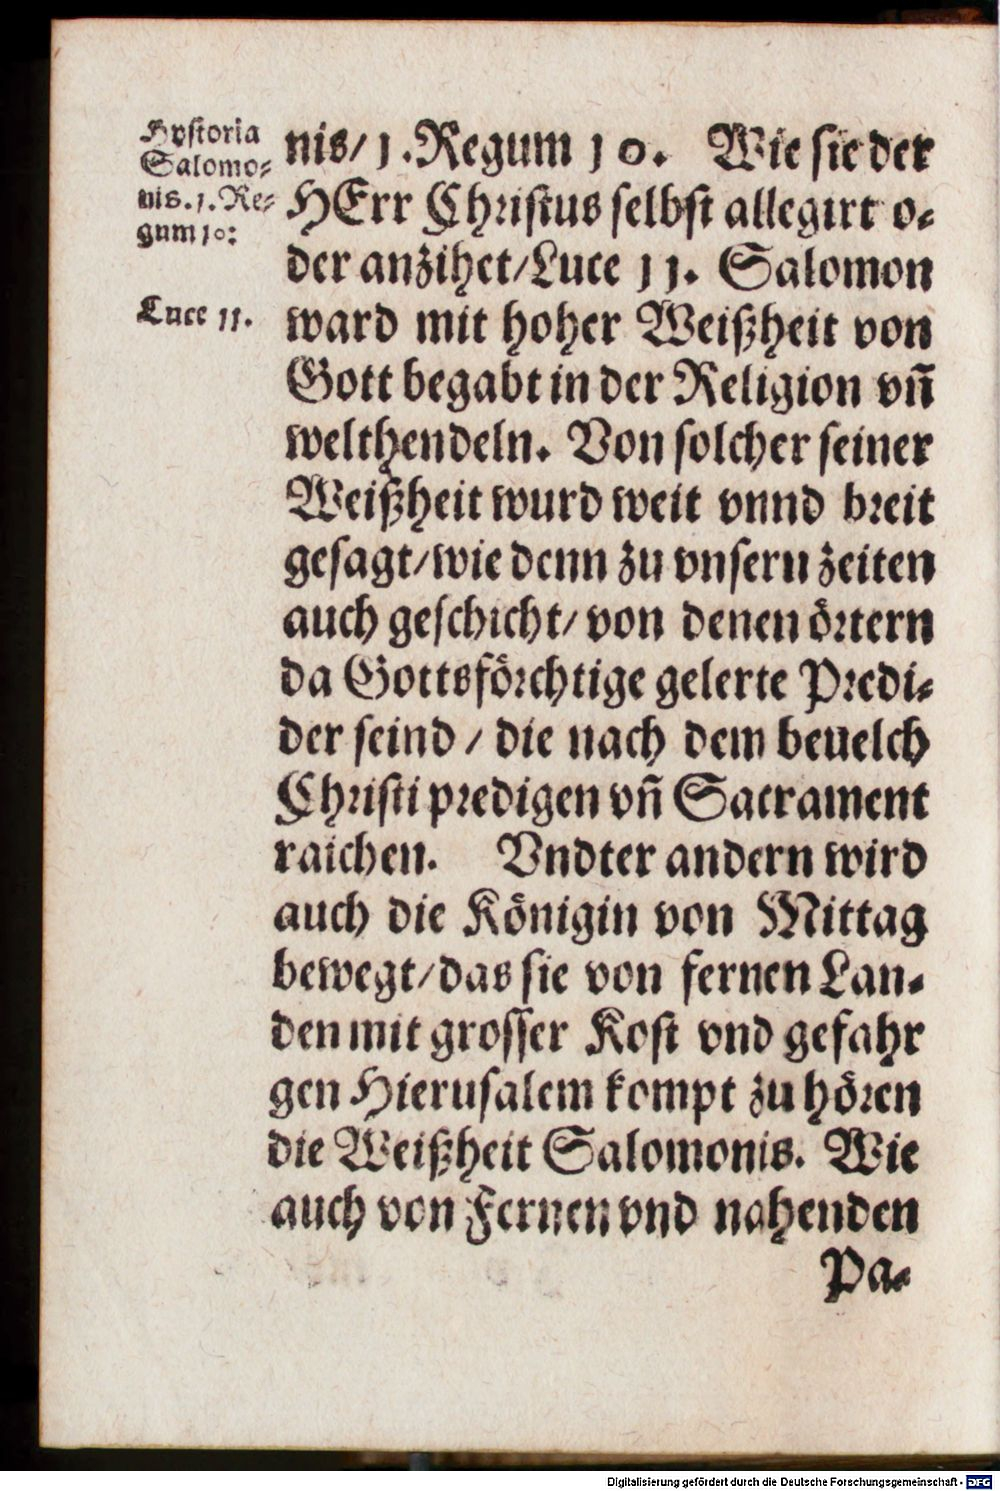 Hystoria
Salomo⸗
nis. 1. Re⸗
gum 10:
Luce 11.
nis/ 1. Regum 10. Wie sie der
HErr Christus selbst allegirt o⸗
der anzihet/ Luce 11. Salomon
ward mit hoher Weißheit von
Gott begabt in der Religion vñ
welthendeln. Von solcher seiner
Weißheit wurd weit vnnd breit
gesagt/ wie denn zu vnsern zeiten
auch geschicht/ von denen örtern
da Gottsförchtige gelerte Predi⸗
der seind / die nach dem beuelch
Christi predigen vñ Sacrament
raichen. Vndter andern wird
auch die Königin von Mittag
bewegt/ das sie von fernen Lan⸗
den mit grosser Kost vnd gefahr
gen Hierusalem kompt zu hören
die Weißheit Salomonis. Wie
auch von Fernen vnd nahenden
Pa⸗
Digitalisierung gefördert durch die Deutsche Forschungsgemeinschaft - DFG